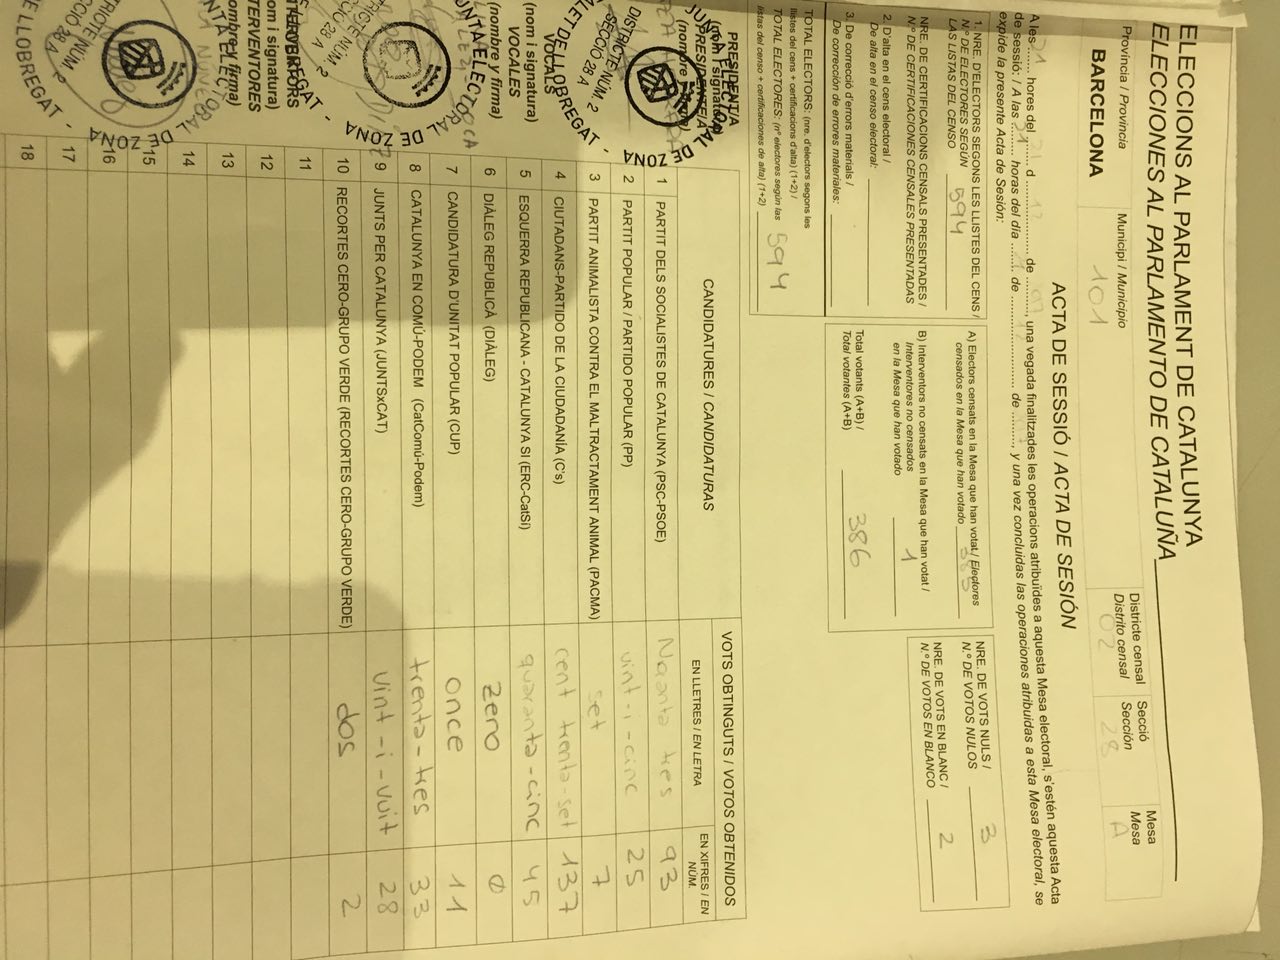 ELECCIONS AL PARLAMENT DE CATALUNYA
ELECCIONES AL PARLAMENTO DE CATALUÑA
Província / Provincia
BARCELONA
Municipi / Municipio
101
Districte censal
Distrito censal
02
Secció
Sección
28
Mesa
Mesa
A
ACTA DE SESSIÓ / ACTA DE SESIÓN
A les 21 hores del 21 d de una vegada finalitzades les operacions atribuïdes a aquesta Mesa electoral, s'estén aquesta Acta
de sessió: / A las 21 horas del día de de y una vez concluidas las operaciones atribuidas a esta Mesa electoral, se
expide la presente Acta de Sesión:
1. NRE. D'ELECTORS SEGONS LES LLISTES DEL CENS /
N.º DE ELECTORES SEGÚN
LAS LISTAS DEL CENSO 594
NRE. DE CERTIFICACIONS CENSALS PRESENTADES /
N.º DE CERTIFICACIONES CENSALES PRESENTADAS
2. D'alta en el cens electoral /
De alta en el censo electoral:
3. De correcció d'errors materials /
De corrección de errores materiales:
TOTAL ELECTORS: (nre. d'electors segons les
llistes del cens + certificacions d'alta) (1+2) /
TOTAL ELECTORES: (nº electores según las
listas del censo + certificaciones de alta) (1+2) 594
A) Electors censats en la Mesa que han votat / Electores
censados en la Mesa que han votado 385
B) Interventors no censats en la Mesa que han votat /
Interventores no censados
en la Mesa que han votado 1
Total votants (A+B) /
Total votantes (A+B) 386
NRE. DE VOTS NULS /
N.º DE VOTOS NULOS 3
NRE. DE VOTS EN BLANC /
N.º DE VOTOS EN BLANCO 2
CANDIDATURES / CANDIDATURAS
VOTS OBTINGUTS / VOTOS OBTENIDOS
EN LLETRES / EN LETRA
EN XIFRES / EN NÚM.
1 PARTIT DELS SOCIALISTES DE CATALUNYA (PSC-PSOE) Noranta tres 93
2 PARTIT POPULAR / PARTIDO POPULAR (PP) vint-i-cinc 25
3 PARTIT ANIMALISTA CONTRA EL MALTRACTAMENT ANIMAL (PACMA) set 7
4 CIUTADANS-PARTIDO DE LA CIUDADANÍA (C's) cent trenta-set 137
5 ESQUERRA REPUBLICANA - CATALUNYA SÍ (ERC-CatSí) quaranta-cinc 45
6 DIÀLEG REPUBLICÀ (DIÀLEG) zero 0
7 CANDIDATURA D'UNITAT POPULAR (CUP) once 11
8 CATALUNYA EN COMÚ-PODEM (CatComú-Podem) trenta-tres 33
9 JUNTS PER CATALUNYA (JUNTSxCAT) vint-i-vuit 28
10 RECORTES CERO-GRUPO VERDE (RECORTES CERO-GRUPO VERDE) dos 2
11
12
13
14
15
16
17
18
PRESIDENT/A
(nom i signatura)
PRESIDENTE/A
VOCALS
(nom i signatura)
VOCALES
(nombre y firma)
INTERVENTORS
(nom i signatura)
INTERVENTORES
(nombre y firma)
JUNTA ELECTORAL DE ZONA
DISTRICTE NÚM. 2
SECCIÓ 28 A